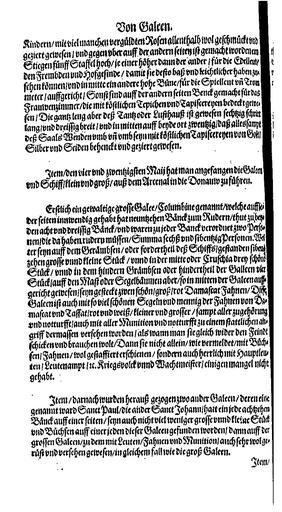 Von Galeen.
Kindern / mit viel manchen vergülldten Rosen allenthalb wol geschmückt und
geziert gewesen / und gegen uber auff der andern seiten ist gemacht worden ein
Stiegen fünff Staffel hoch / je einer höher dann der ander / für die Edelleut /
den Frembden und Hofgesinde / damit sie desto baß und leichtlicher haben zu-
sehen können / und in mitte ein andere hohe Büne / für die Spielleut unn Trom-
meter / auffgericht / Sonst sind auff der andern seiten Benck gemacht für das
Frawenzimmer / die mit köstlichen Tepichen und Tapissereyen bedeckt gewe-
sen / Die gantz lang aber deß Tantz oder Lusthauß ist gewesen sechtzig schritt
lang / und dreissig breit / und in mitten auff beyde ort zwentzig / daß allesampt
deß Saals Wenden umb unn umb seyn mit köstlichen Tapissereyen von Golt /
Silber und Seiden behenckt und geziert gewesen.
Item / den vier und zwentzigsten Maij hat man angefangen die Galeen
und Schiff / klein und groß / auß dem Arcenal in die Donauw zu führen.
Erstlich ein gewaltige grosse Galee / Columbine genannt / welche auff je-
der seiten inwendig gehabt hat neuntzehen Bänck zum Rudern / thut zu bey-
den acht und dreissig Bänck / und waren zu jeder Banck verordnet zwo Perso-
nen / die da haben rudern müssen / Summa sechß und sibentzig Personen. Wei-
ter seyn auff dem Gränsben / oder fordertheil deß Schiffs / gestanden sieben-
zehen grosse und kleine Stück / unnd in der mitte oder Cruschia drey schöne
Stück / unnd in dem hindern Gränsben oder hindertheil der Galeen vier
Stück / auff den Mast oder Segelbäumen aber / so in mitten der Galeen auff-
gericht gewesen / seyn gesteckt zween schön / groß / rot Damascat Fahnen / Diese
Galeen ist auch mit so viel schönen Segeln und mennig der Fahnen von Da-
mascat und Taffat / rot und weiß / kleiner und grosser / sampt aller zugehörung
und notturfft / auch mit aller Munition und notturfft zu einem stattlichen an-
griff dermassen versehen worden / als wann man sie gleich wider den Feindt
schicken und brauchen wolt / Dann sie nicht allein / wie vermeldet / mit Büch-
sen / Fahnen / wol gestaffiert erschienen / sondern auch herrlich mit Hauptleu-
ten / Leutenampt / ꝛc. Kriegsvolck unnd Wachtmeister / einigen mangel nicht
gehabt.
Item / darnach wurden herauß gezogen zwo ander Galeen / deren eine
genannt ward Sanct Paul / die ander Sanct Johann / hatt ein jede achtzehen
Bänck auff einer seiten / seyn auch nicht viel weniger grosse und kleine Stück
und Büchsen auff einer jeden dieser Galeen gefunden worden / dann auff der
grossen Galeen / zu dem mit Leuten / Fahnen und Munition / auch sehr wol ge-
rüst und versehen gewesen / in gleichem fall wie die groß Galeen.
Item /